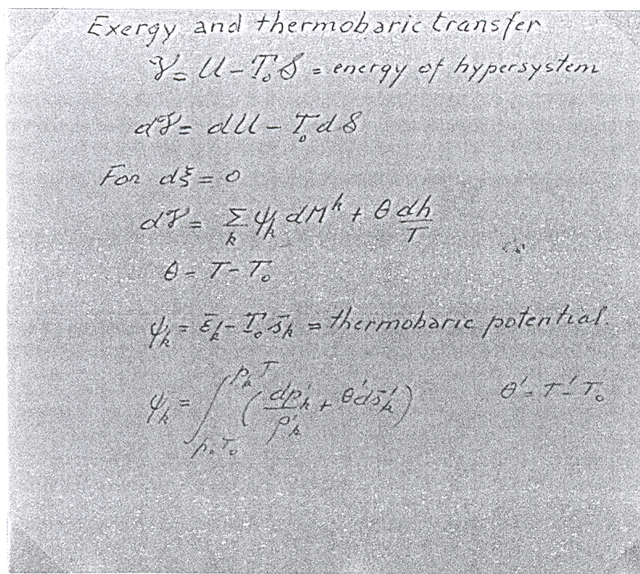 Exergy and thermobaric transfer
𝒱 = U - T₀ S = energy of hypersystem
d𝒱 = dU - T₀ dS
For dξ = 0
d𝒱 = Σₖ ψₖ dMᵏ + θ dh/T
θ = T - T₀
ψₖ = ε̄ₖ - T₀ s̄ₖ = thermobaric potential.
ψₖ = ∫_{p₀T₀}^{pₖT} (dp'ₖ/ρ'ₖ + θ'ds̄'ₖ) θ' = T' - T₀